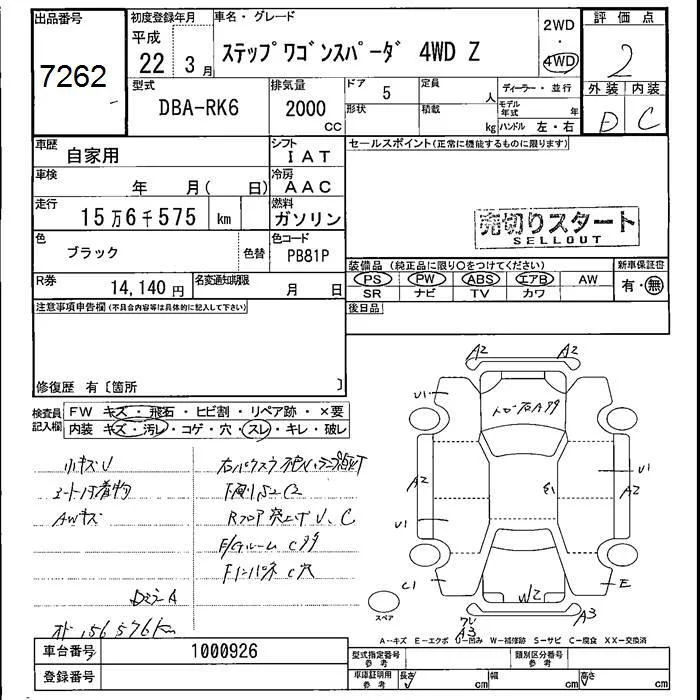 出品番号
7262
初度登録年月
平成
22年 3月
車名・グレード
ステップワゴンスパーダ 4WD Z
2WD
4WD
評価点
2
外装 内装
D C
型式
DBA-RK6
排気量
2000
cc
ドア 5
定員
人
形状
積載
kg
ディーラー・並行
モデル年式 年
ハンドル 左・右
車歴
自家用
シフト
IAT
車検
年 月( 日)
冷房
AAC
走行
15万6千575 km
燃料
ガソリン
色
ブラック
色替
色コード
PB81P
R券
14,140円
名変通知期限
月 日
セールスポイント(正常に機能するものに限ります)
売切りスタート
SELLOUT
装備品(純正品に限り○をつけてください)
PS PW ABS エアB AW
SR ナビ TV カワ
新車保証書
有・無
後日品
注意事項申告欄(不具合内容等は具体的に記入して下さい)
修復歴 有〔箇所 〕
検査員記入欄
FW キズ・飛石・ヒビ割・リペア跡・×要
内装 キズ・汚レ・コゲ・穴・スレ・キレ・破レ
小キズU
シート付着物
AWキズ
下廻りS C2
Rフロア突上ゲU、C
DミラーA
オド156576km
A2 A2
U1
A2
U1
U1
A2
C1
E
W2
A3
A3
スペア
A-キズ E-エクボ U-凹み W-補修跡 S-サビ C-腐食 XX-交換済
車台番号
1000926
登録番号
型式指定番号
参考
類別区分番号
参考
車庫証明用
参考
長さ cm
幅 cm
高さ cm